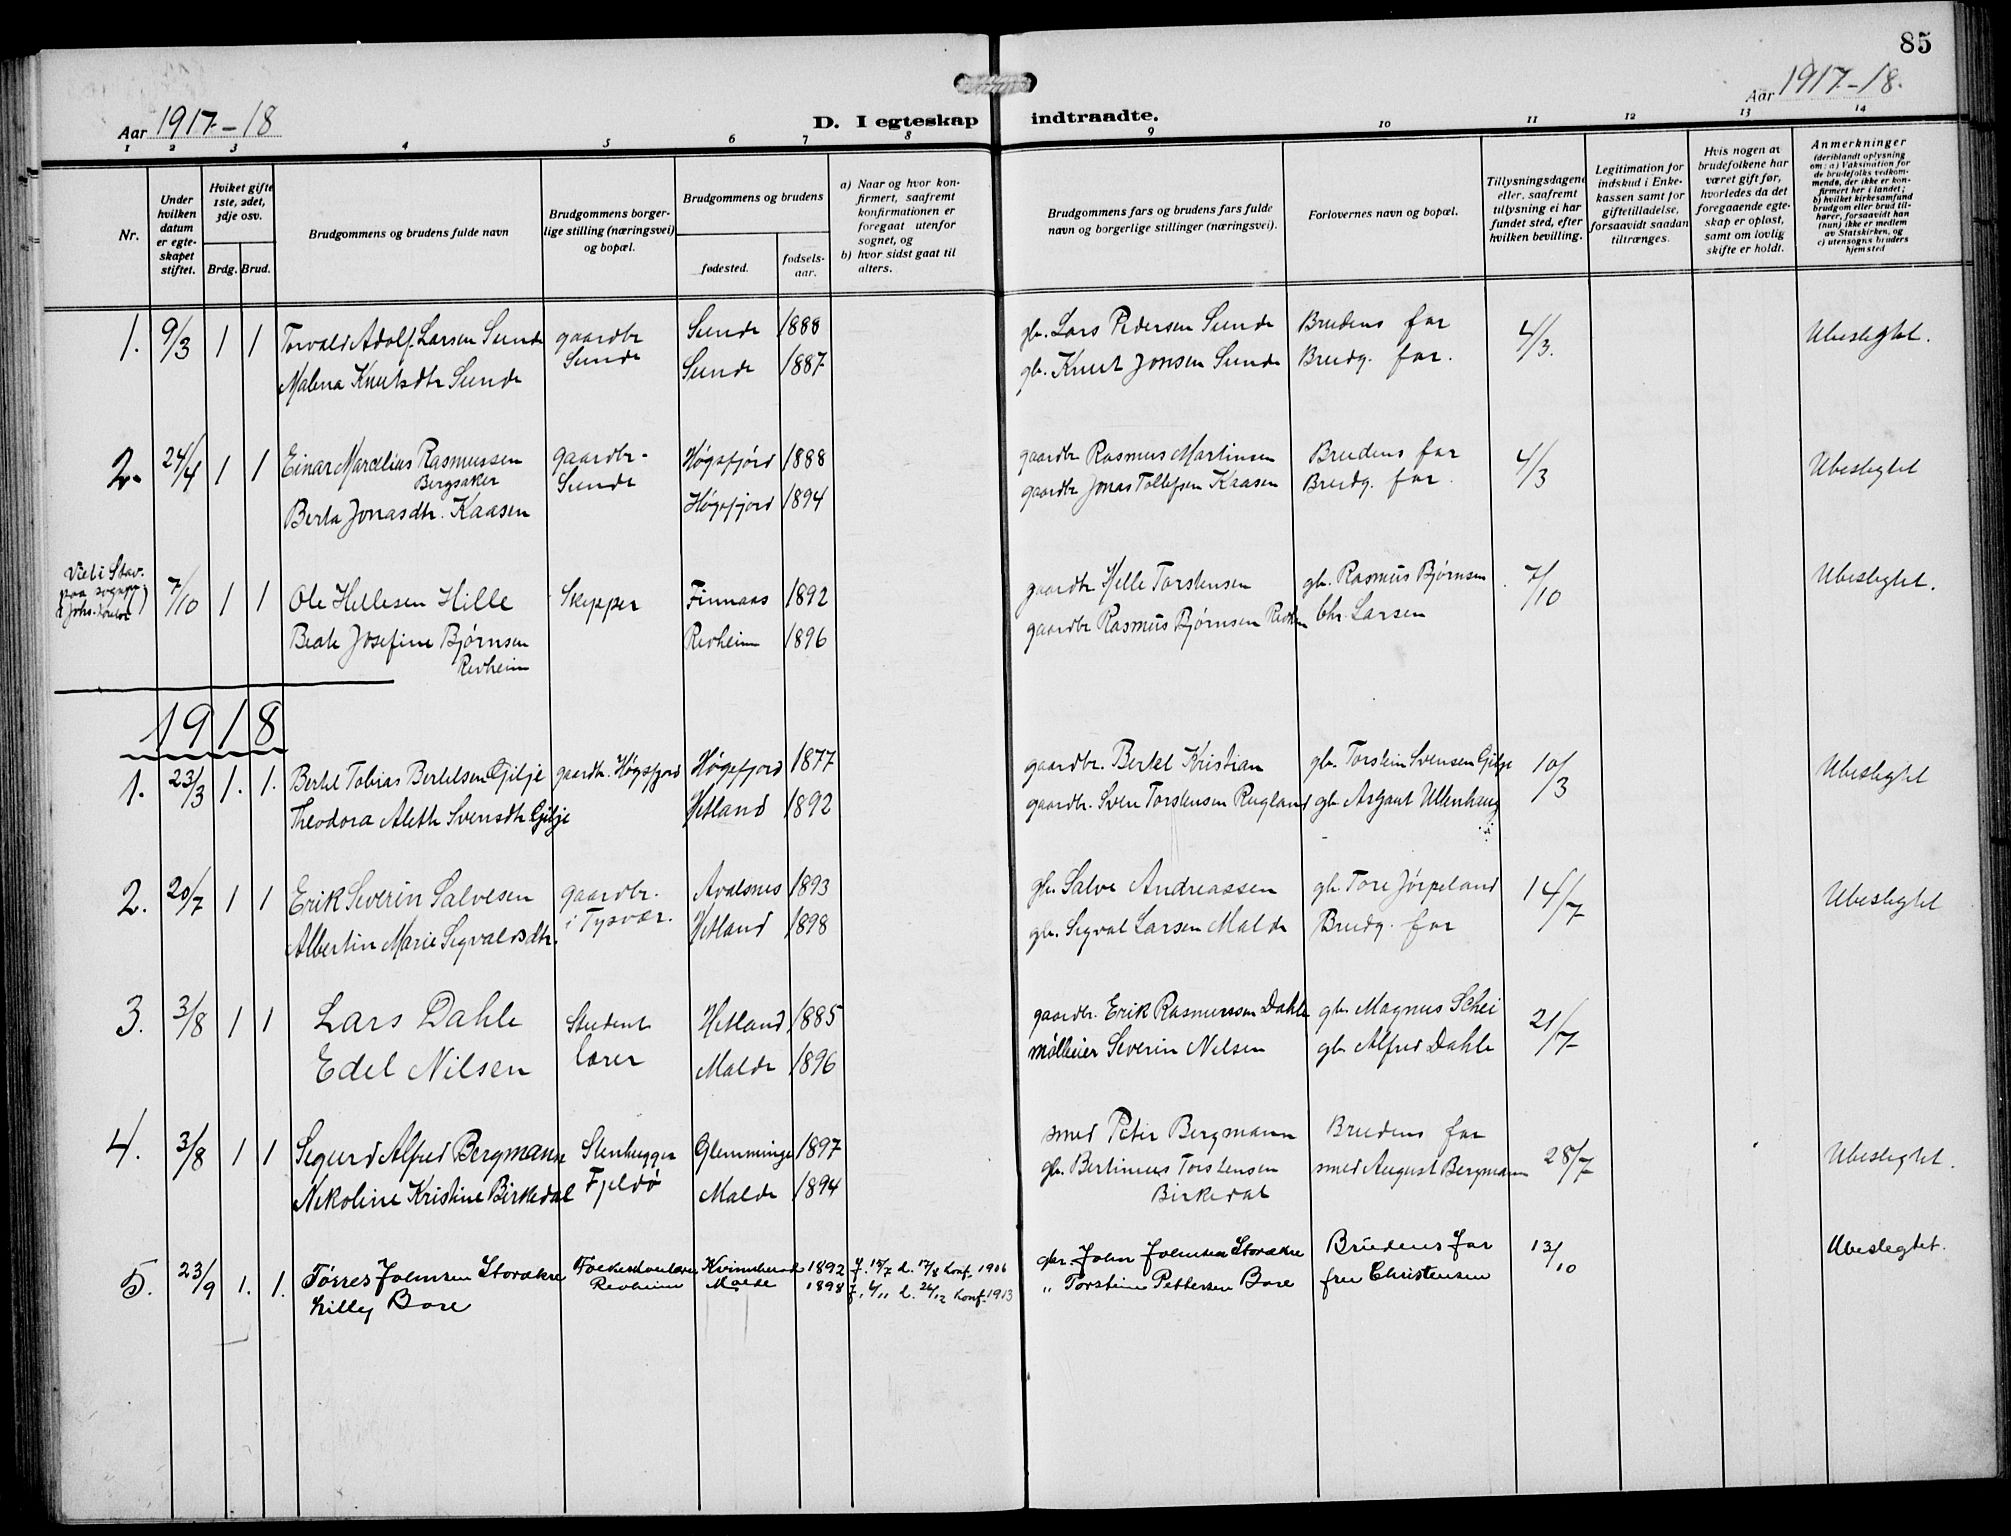 85
Aar 1917-18
Aar 1917-18.
D. I egteskap indtraadte.
1 2 3 4 5 6 7 8 9 10 11 12 13 14
Nr.
Under
hvilken
datum
er egte-
skapet
stiftet.
Hviket gifte
1ste, 2det,
3dje osv.
Brdg. Brud.
Brudgommens og brudens fulde navn
Brudgommens borger-
lige stilling (næringsvei)
og bopæl.
Brudgommens og brudens
fødested.
fødsels-
aar.
a) Naar og hvor kon-
firmert, saafremt
konfirmationen er
foregaat utenfor
sognet, og
b) hvor sidst gaat til
alters.
Brudgommens fars og brudens fars fulde
navn og borgerlige stillinger (næringsvei).
Forlovernes navn og bopæl.
Tillysningsdagene
eller, saafremt
tillysning ei har
fundet sted, efter
hvilken bevilling.
Legitimation for
indskud i Enke-
kassen samt for
giftetilladelse,
forsaavidt saadan
tiltrænges.
Hvis nogen av
brudefolkene har
været gift før,
hvorledes da det
foregaaende egte-
skap er opløst,
samt om lovlig
skifte er holdt.
Anmerkninger
(deriblandt oplysning
om: a) Vaksination for
de brudefolks vedkom-
mende, der ikke er kon-
firmert her i landet;
b) hvilket kirkesamfund
brudgom eller brud til-
hører, forsaavidt han
(hun) ikke er medlem
av Statskirken, og
c) utensogns bruders
hjemsted
1. 9/3 1 1 Torvald Adolf Larsen Sunde gaardbr Sunde 1888 gb. Lars Pedersen Sunde Brudens far 4/3. Ubeslegtet.
Malena Knutsdtr Sunde Sunde Sunde 1887 gb. Knut Jonsen Sunde Brudg. far.
2. 24/4 1 1 Einar Marcelius Rasmussen gaardbr. Høgsfjord 1888 gaardbr Rasmus Martinsen Brudens far 4/3 Ubeslegtet
Bergsaker Sunde
Berta Jonasdtr. Kaasen Høgsfjord 1894 gaardbr Jonas Tollefsen Kaasen Brudg. far.
Viet i Stav.
paa
7/10 1 1 Ole Hellesen Hille Skipper Finnaas 1892 gaardbr Helle Torstensen gb. Rasmus Bjørnsen 7/10 Ubeslegtet.
Beate Josefine Bjørnsen Revheim 1896 gaardbr Rasmus Bjørnsen Chr. Larsen
Revheim
1918
1. 23/3 1. 1. Bertel Tobias Bertelsen Gilje gaardbr. Høgsfjord Høgsfjord 1877 gaardbr. Bertel Kristian gb. Torstein Svensen Gilje 10/3 Ubeslegtet
Theodora Aleth Svensdtr Gilje Hetland 1892 gaardbr. Sven Torstensen Rugland gb. Asgaut Ullenhaug
2. 20/7 1 1 Erik Severin Salvesen gaardbr. Avalsnes 1893 gbr. Salve Andreassen gb. Tore Jørpeland 14/7 Ubeslegtet
Albertin Marie Sigvaldsdtr. i Tysvær. Hetland 1898 gb. Sigval Larsen Malde Brudg. far
3. 3/8 1 1 Lars Dahle Student Hetland 1885 gaardbr. Erik Rasmussen Dahle gb. Magnus Schei 21/7
Edel Nilsen lærer Malde 1896 mølleier Severin Nilsen gb. Alfred Dahle
4. 3/8 1 1 Sigurd Alfred Bergmann Stenhugger Glemminge 1897 smed Peter Bergmann Brudens far 28/7 Ubeslegtet.
Nikoline Kristine Birkedal Fjeldø Malde 1894 gb. Bertinius Torstensen smed August Bergmann
Birkedal
5. 23/9 1. 1. Tørres Johnsen Storækre Kvinnherad 1892 f. 18/7 d. 17/8 konf. 1906 gbr. John Johnsen Storækre Brudens far 13/10 Ubeslegtet.
Lilly Bore Revheim Malde 1898 f. 6/11 d. 26/12 konf. 1913 " Torstein Pettersen Bore fru Christensen